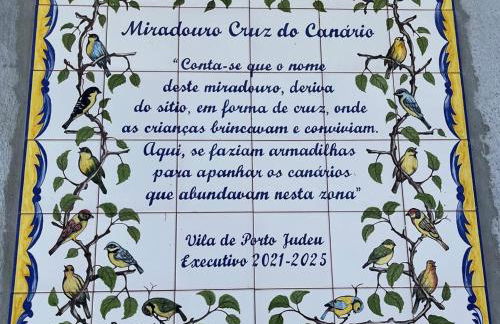 Miradouro Cruz do Canário
“Conta-se que o nome
deste miradouro, deriva
do sítio, em forma de cruz, onde
as crianças brincavam e conviviam.
Aqui, se faziam armadilhas
para apanhar os canários
que abundavam nesta zona”
Vila de Porto Judeu
Executivo 2021-2025